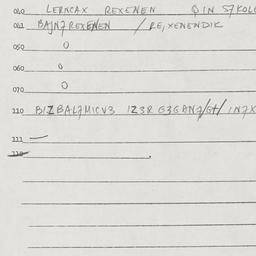 040 LERNCAX REXENEN Q IN S7KOL
041 BAJN7REXENEN / RE,XENENDIK
050 0
060 0
070 0
110 BIZBAL7MICV3 1Z3R G3GAN7/G+/ IN7X
111 —